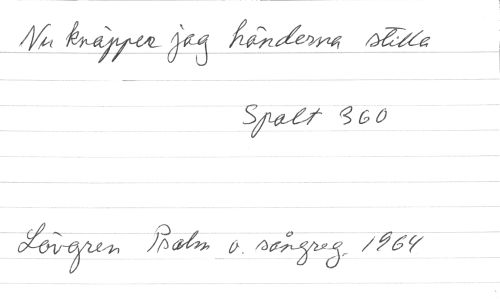 Nu knäpper jag händerna stilla
Spalt 360
Lövgren Psalm o. sångreg. 1964